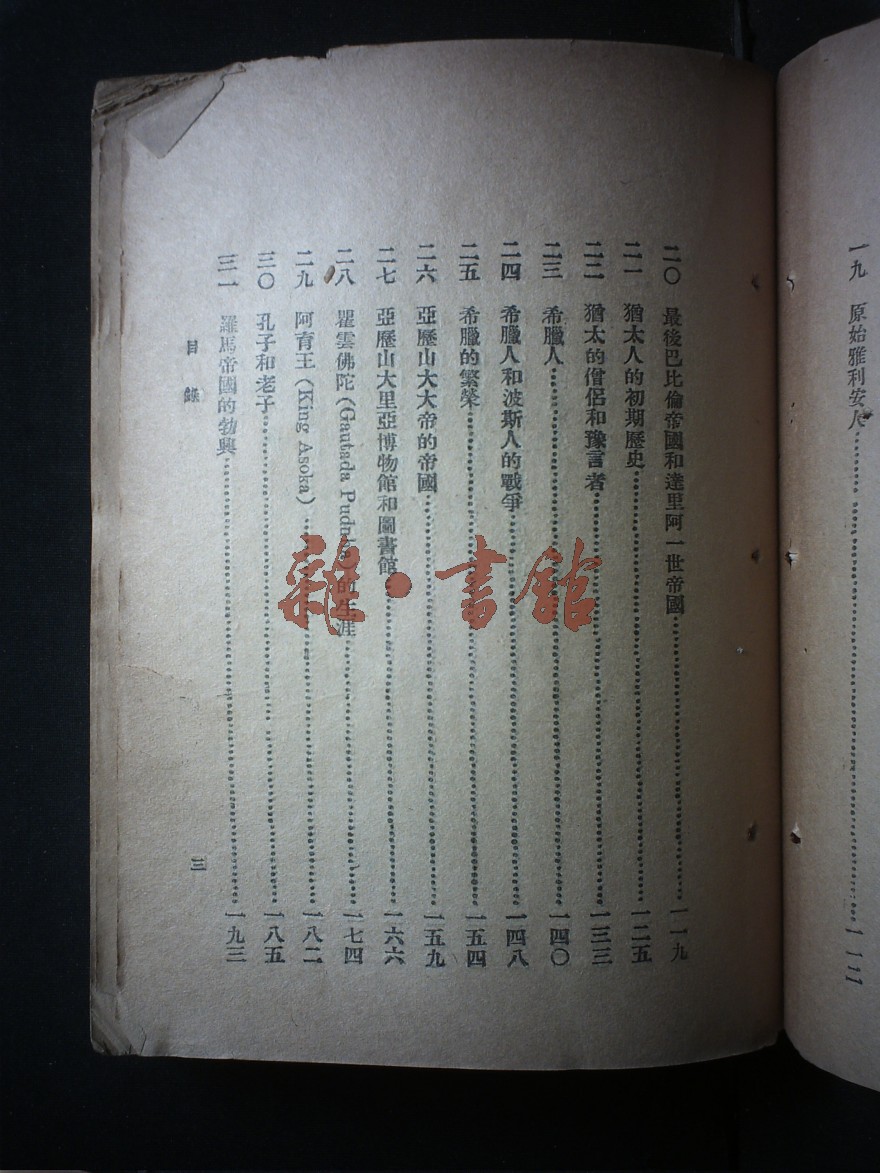 一九 原始雅利安人……一一二
二〇 最後巴比倫帝國和達里阿一世帝國……一一九
二一 猶太人的初期歷史……一二五
二二 猶太的僧侶和豫言者……一三三
二三 希臘人……一四〇
二四 希臘人和波斯人的戰爭……一四八
二五 希臘的繁榮……一五四
二六 亞歷山大大帝的帝國……一五九
二七 亞歷山大里亞博物館和圖書館……一六六
二八 瞿雲佛陀(Gautada Pudnha)的生涯……一七四
二九 阿育王(King Asoka)……一八二
三〇 孔子和老子……一八五
三一 羅馬帝國的勃興……一九三
目錄
三
雜·書館